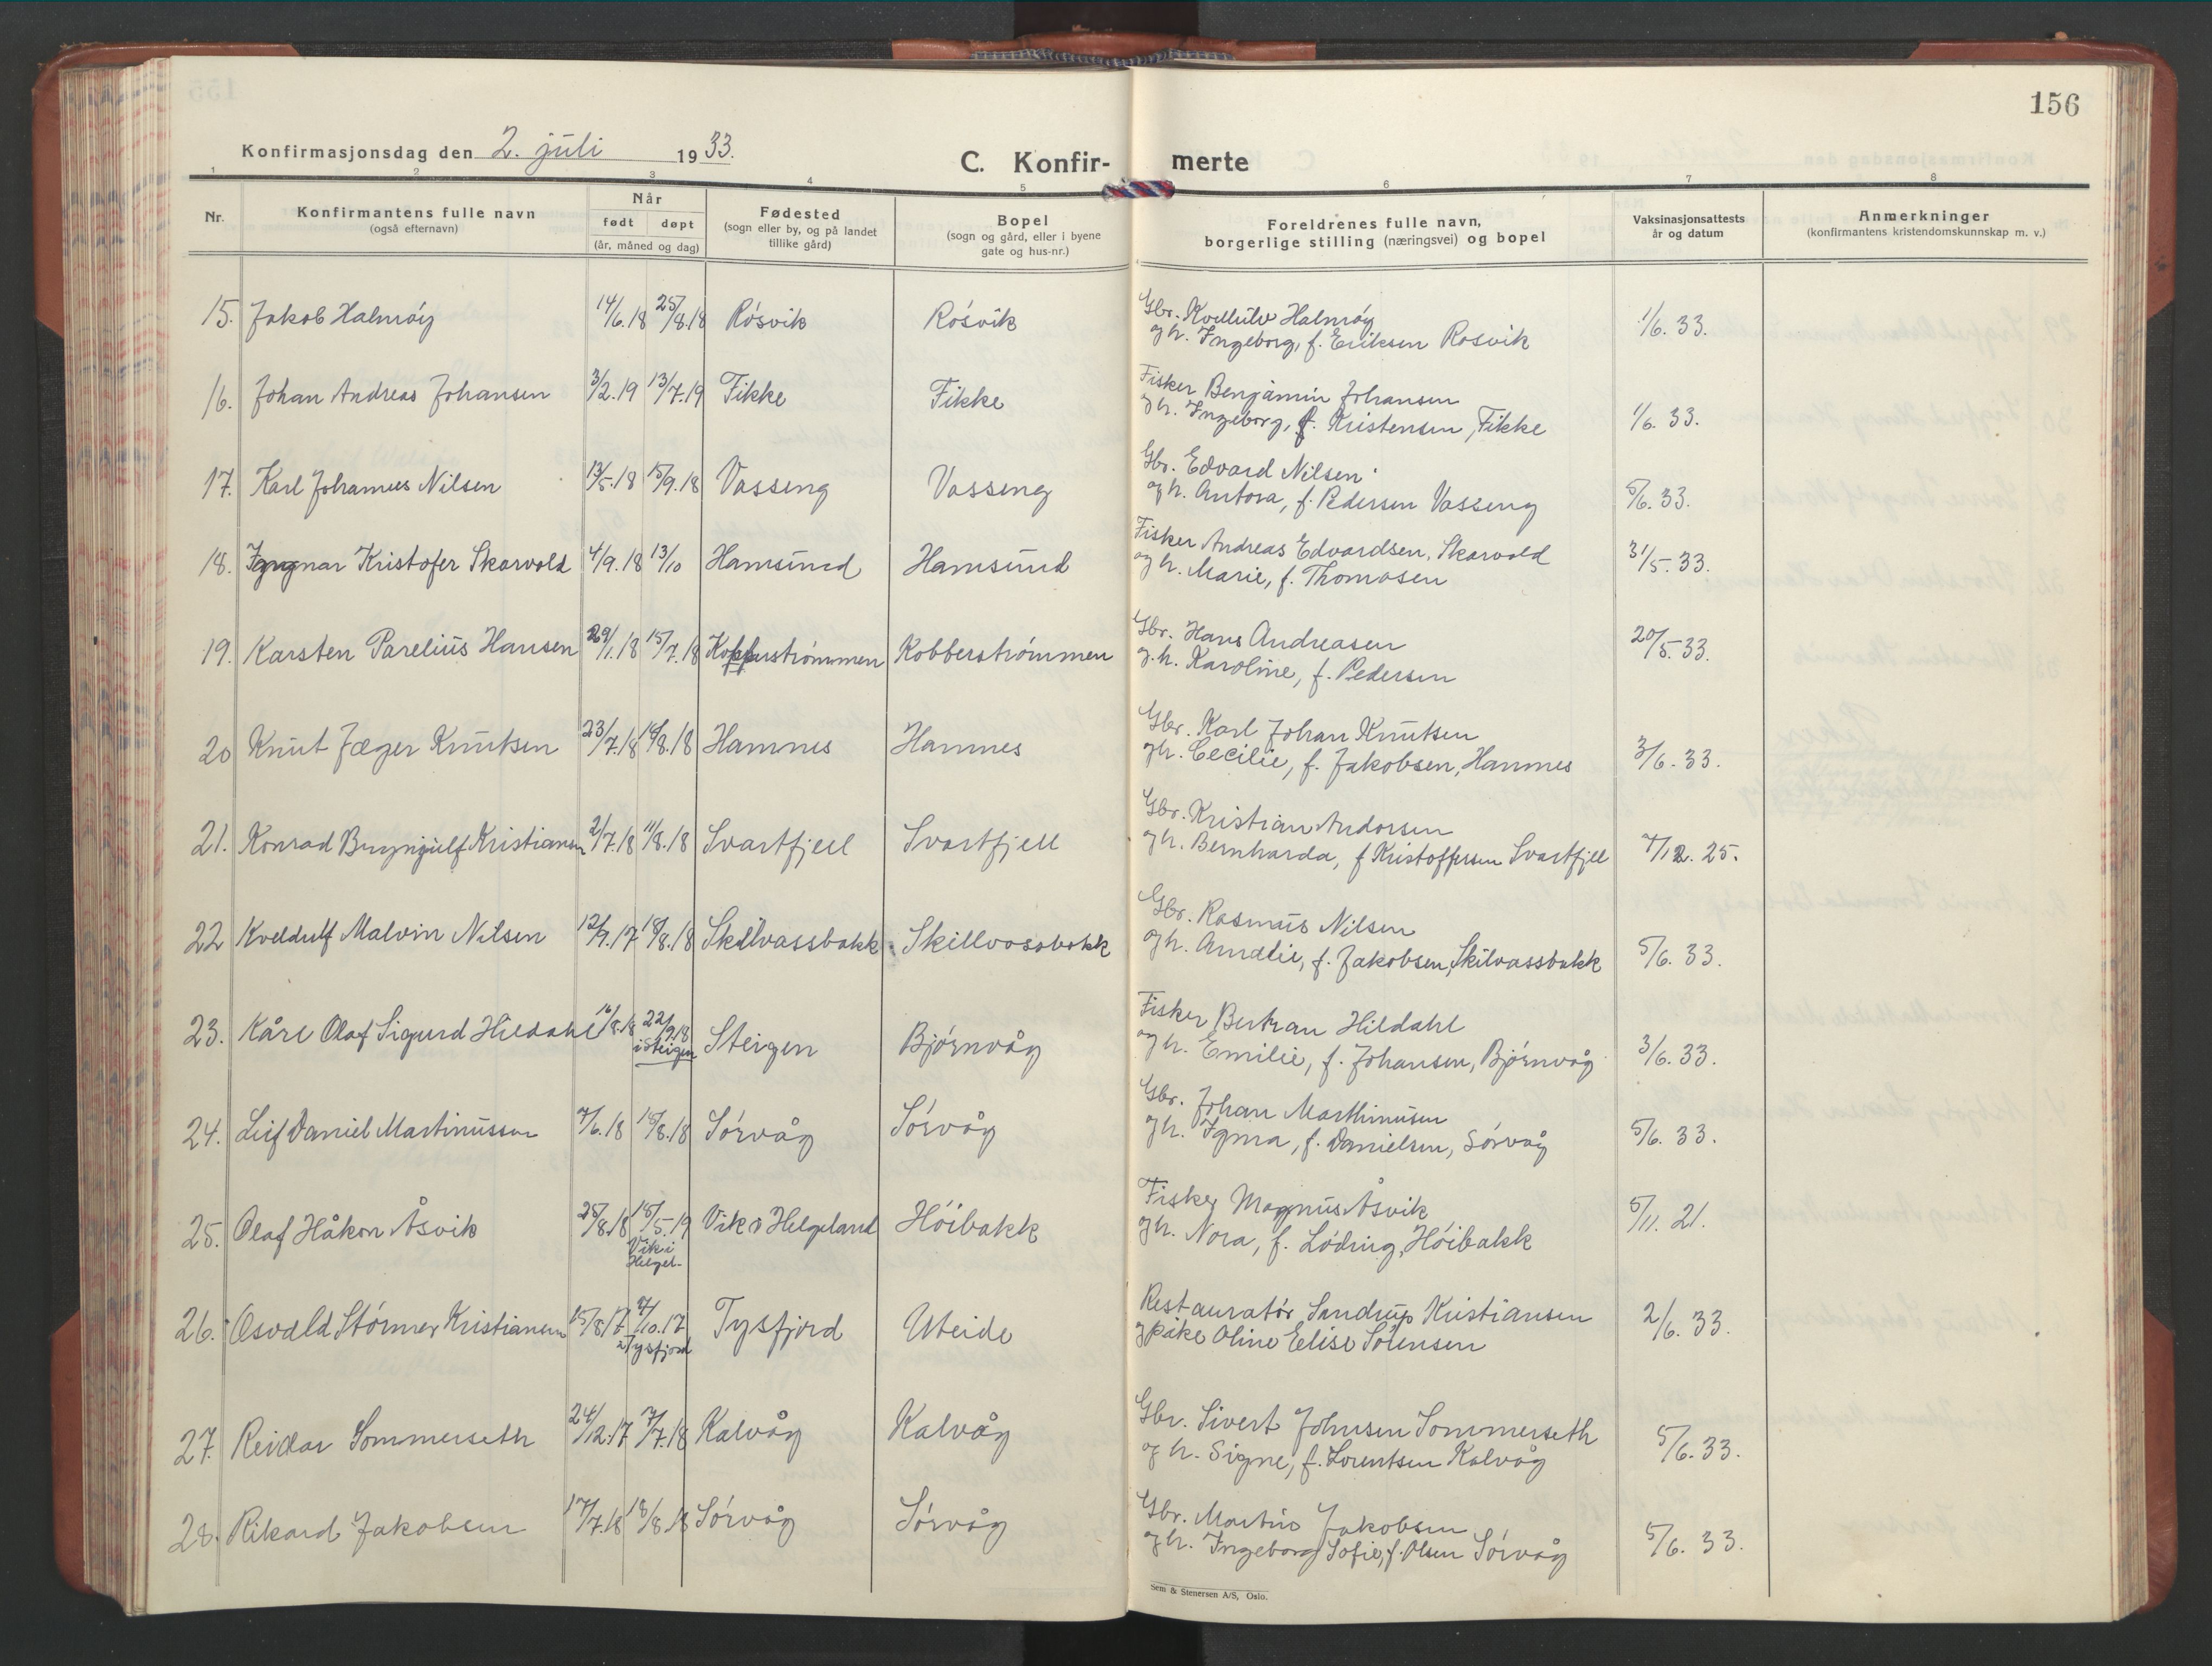 156
Konfirmasjonsdag den 2. juli 1933.
C. Konfir- merte
1 2 3 4 5 6 7 8
Nr. Konfirmantens fulle navn (også efternavn) Når født døpt (år, måned og dag) Fødested (sogn eller by, og på landet tillike gård) Bopel (sogn og gård, eller i byene gate og hus-nr.) Foreldrenes fulle navn, borgerlige stilling (næringsvei) og bopel Vaksinasjonsattests år og datum Anmerkninger (konfirmantens kristendomskunnskap m. v.)
15. Jakob Halmøy 14/6.18 25/8.18 Røsvik Røsvik Gbr. Halmøy
og h. Ingeborg, f. Eriksen Røsvik 1/6. 33.
16. Johan Andreas Johansen 3/2.19 13/7.19 Fikke Fikke Fisker Benjamin Johansen
og h. Ingeborg, f. Kristensen, Fikke 1/6. 33.
17. Karl Johannes Nilsen 13/5.18 15/9.18 Vasseng Vasseng Gbr. Edvard Nilsen
og h. Antora, f. Pedersen Vasseng 5/6. 33.
18. Kristofer Skarvold 4/9.18 13/10 Hamsund Hamsund Fisker Andreas Edvardsen, Skarvold
og h. Marie, f. Thomasen 31/5. 33.
19. Karsten Parelius Hansen 29/1.18 15/7.18 Kobberstrømmen Gbr. Hans Andreasen
og h. Karoline, f. Pedersen 20/5. 33.
20 Knut Jæger Knutsen 23/7.18 18/8.18 Hamnes Hamnes Gbr. Karl Johan Knutsen
og h. Cecilie, f. Jakobsen, Hamnes 3/6. 33.
21. Konrad Brynjulf Kristiansen 2/7.18 11/8.18 Svartfjell Svartfjell Gbr. Kristian Andorsen
og h. Bernharda, f Kristoffersen Svartfjell 7/12. 25.
22 Kveldulf Malvin Nilsen 12/9.17 18/8.18 Skilvassbakk Skillvassbakk Gbr. Rasmus Nilsen
og h. Amalie, f. Jakobsen, Skilvassbakk 5/6. 33.
23. Kåre Olaf Sigurd Hildahl 16/8.18 22/9.18 i Steigen Steigen Bjørnvåg Fisker Bertran Hildahl
og h. Emilie, f. Johansen, Bjørnvåg 3/6. 33.
24. Leif Daniel Martinussen 7/6.18 18/8.18 Sørvåg Sørvåg Gbr. Johan Marthinusen
og h. Igma, f. Danielsen, Sørvåg 5/6. 33.
25. Olaf Håkon Åsvik 25/8.18 18/5.19 Vik i Helgel. Vik i Helgeland Høibakk Fisker Magnus Åsvik
og h. Nora, f. Løding, Høibakk 5/11. 21.
26. Osvald Størmer Kristiansen 15/8.17 7/10.17 i Tysfjord Tysfjord Uteide Restauratør Sandrup Kristiansen
og pike Oline Elise Sørensen 2/6. 33.
27. Reidar Sommerseth 24/12.17 7/7.18 Kalvåg Kalvåg Gbr. Sivert Johnsen Sommerseth
og h. Signe, f. Lorentsen Kalvåg 5/6. 33.
28. Rikard Jakobsen 17/7.18 18/8.18 Sørvåg Sørvåg Gbr. Martin Jakobsen
og h. Ingeborg Sofie, f. Olsen Sørvåg 5/6. 33.
Sem & Stenersen A/S, Oslo.